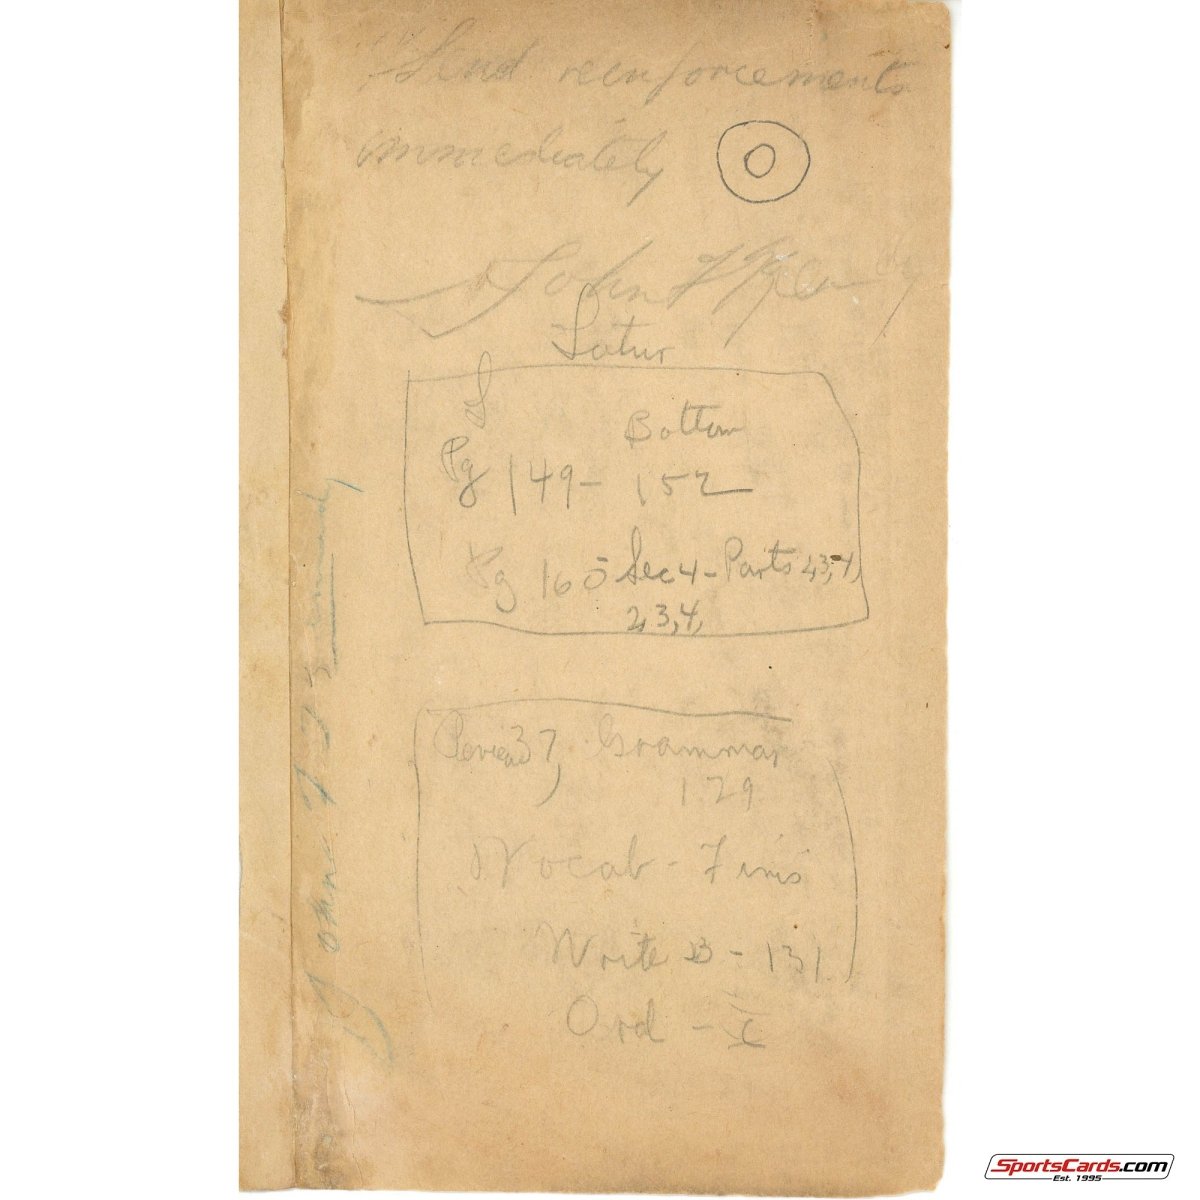 "Send reenforcements
immediately
John F Kennedy
Latin
Pg 149 - 152 Bottom
Pg 160 - Sec 4 - Parts 2,3,4,
2,3,4,
Review 37, Grammar
129
Vocab - Finis
Write B - 131
Ord - I
John F Kennedy
SportsCards.com
Est. 1995